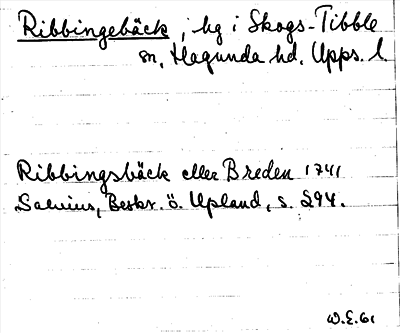 Ribbingebäck, hg i Skogs-Tibble
sn, Hagunda hd, Upps. l.
Ribbingsbäck eller Breden 1741
Salvius, Beskr. ö. Upland, s. 294.
W.E. 61